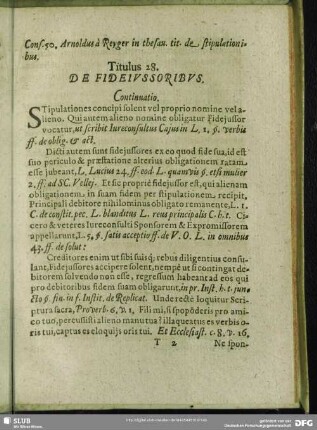 Cons. 50. Arnoldus à Reyger in thesau. tit. de stipulationi-
bus.
Titulus 28.
DE FIDEIVSSORIBVS.
Continuatio.
STipulationes concipi solent vel proprio nomine vel a-
lieno. Qui autem alieno nomine obligatur Fidejussor
vocatur, ut scribit Iureconsultus Cajus in L. 1. §. verbis
ff. de oblig. & act.
Dicti autem sunt fidejussores ex eo quod fide sua, id est
suo periculo & præstatione alterius obligationem ratam
esse jubeant, L. Lucius 24. ff. eod. L. quamvis §. etsi mulier
2. ff. ad SC. Vellej. Et sic propriè fidejussor est, qui alienam
obligationem, in suam fidem per stipulationem, recipit,
Principali debitore nihilominus obligato remanente, L. 1.
C. de constit. pec. L. blanditus L. reus principalis C. h. t. Ci-
cero & veteres Iureconsulti Sponsorem & Expromissorem
appellarunt, L. 5. §. satis acceptio ff. de V. O. L. in omnibus
43. ff. de solut:
Creditores enim ut sibi suisq; rebus diligentius consu-
lant, Fidejussores accipere solent, nempè ut si contingat de-
bitorem solvendo non esse, regressum habeant ad eos qui
pro debitoribus fidem suam obligarunt, in pr. Inst. h. t. jun.
§. fin. in f. Instit. de Replicat. Unde rectè loquitur Scri-
ptura sacra, Proverb. 6. v. 1. Fili mi, si spopõderis pro ami-
co tuo, percussisti alieno manu tua? illaqueatus es verbis o-
ris tui, captus es eloquijs oris tui. Et Ecclesiast. c. 8. v. 16.
T 2 Ne spon-
SLUB
Wir führen Wissen.
gefördert von der
Deutschen Forschungsgemeinschaft
DFG